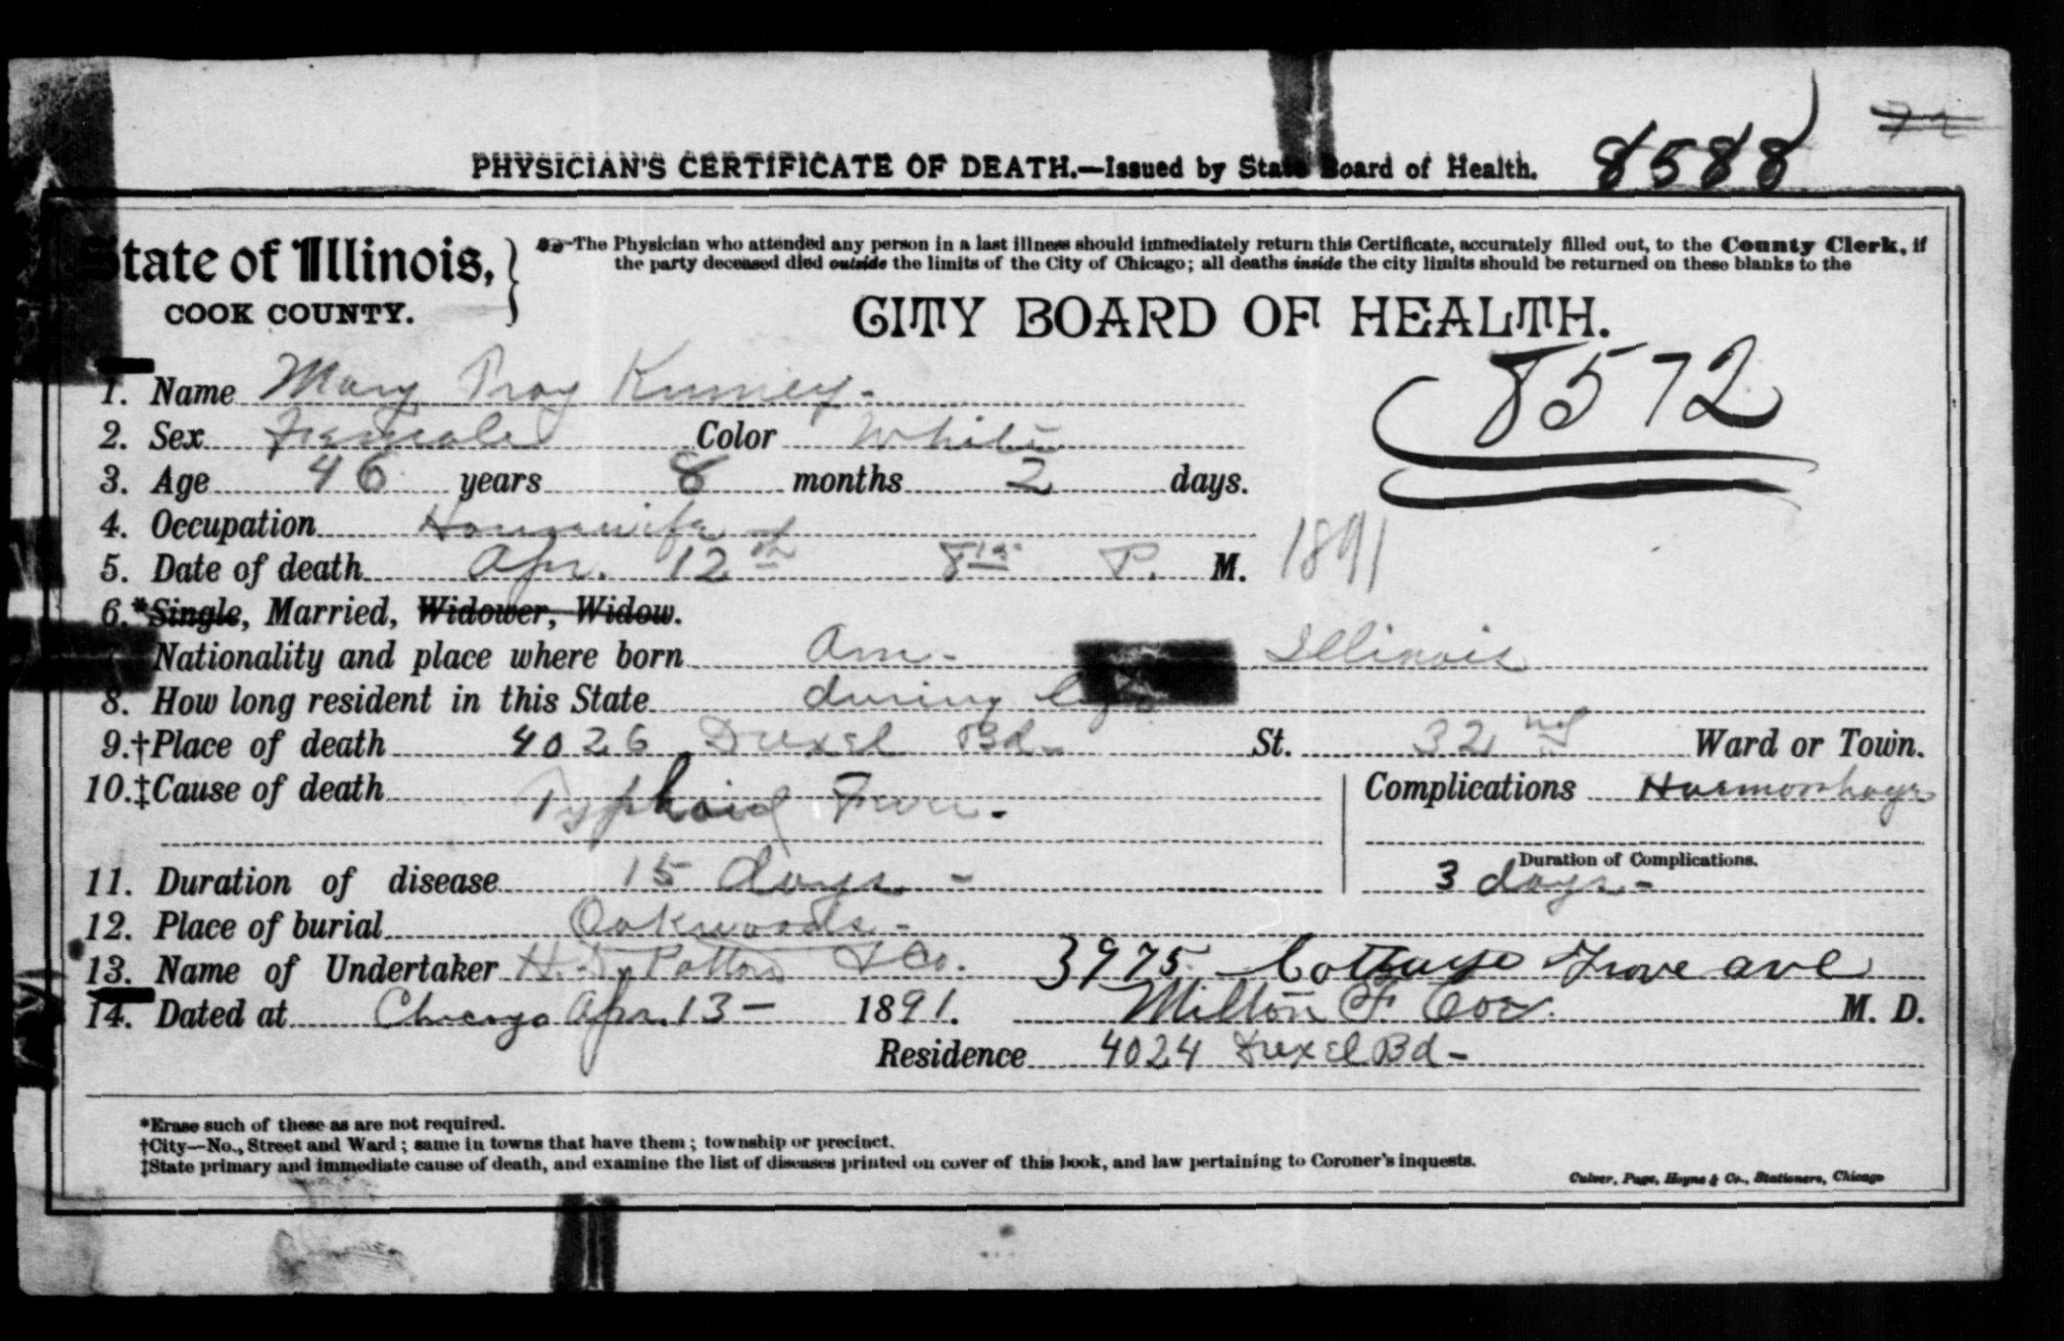 8588
PHYSICIAN'S CERTIFICATE OF DEATH.—Issued by State Board of Health.
State of Illinois,
COOK COUNTY.
The Physician who attended any person in a last illness should immediately return this Certificate, accurately filled out, to the County Clerk, if
the party deceased died outside the limits of the City of Chicago; all deaths inside the city limits should be returned on these blanks to the
CITY BOARD OF HEALTH.
8572
1. Name Mary Kinney-
2. Sex Female Color White
3. Age 46 years 8 months 2 days.
4. Occupation Housewife
5. Date of death Apr. 12th 8 P. M. 1891
6.*Single, Married, Widower, Widow.
Nationality and place where born Am- Illinois
8. How long resident in this State during life
9.†Place of death 4026 Drexel Bd- St. 32nd Ward or Town.
10.‡Cause of death Typhoid Fever- Complications Haemorrhage
Duration of Complications.
11. Duration of disease 15 days - 3 days-
12. Place of burial Oakwoods-
13. Name of Undertaker H. Patton & Co. 3975 Cottage Grove ave
14. Dated at Chicago Apr. 13- 1891. Milton F Coe. M. D.
Residence 4024 Drexel Bd-
*Erase such of these as are not required.
†City—No., Street and Ward; same in towns that have them; township or precinct.
‡State primary and immediate cause of death, and examine the list of diseases printed on cover of this book, and law pertaining to Coroner's inquests.
Culver, Page, Hoyne & Co., Stationers, Chicago